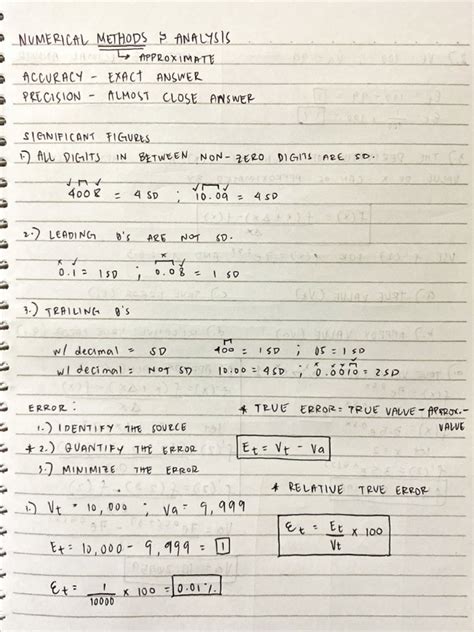 NUMERICAL METHODS & ANALYSIS
↳ APPROXIMATE
ACCURACY - EXACT ANSWER
PRECISION - ALMOST CLOSE ANSWER
SIGNIFICANT FIGURES
1.) ALL DIGITS IN BETWEEN NON-ZERO DIGITS ARE SD.
4008 = 4 SD ; 10.09 = 4 SD
2.) LEADING 0'S ARE NOT SD.
0.1 = 1 SD ; 0.08 = 1 SD
3.) TRAILING 0'S
w/ decimal = SD 400 = 1 SD ; 05 = 1 SD
w/ decimal = NOT SD 10.00 = 4 SD ; 0.0010 = 2 SD
ERROR : * TRUE ERROR = TRUE VALUE - APPROX.-
VALUE
1.) IDENTIFY THE SOURCE
* 2.) QUANTIFY THE ERROR Et = Vt - Va
3.) MINIMIZE THE ERROR
* RELATIVE TRUE ERROR
1.) Vt = 10,000 ; Va = 9,999
Ɛt = Et/Vt × 100
Et = 10,000 - 9,999 = 1
Ɛt = 1/10000 × 100 = 0.01%